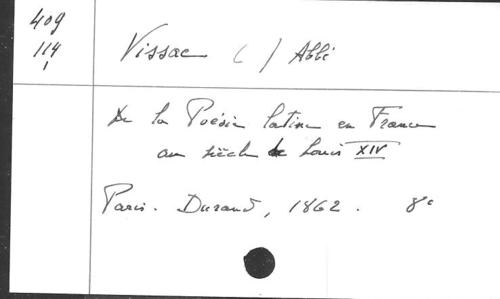 409
114
1
Vissac ( ) Abbé
De la Poésie latine en France
au siècle de Louis XIV
Paris. Durand, 1862. 8°